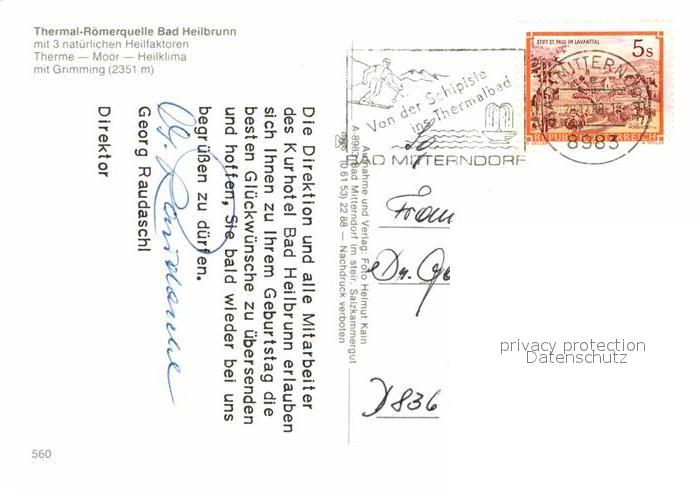 Thermal-Römerquelle Bad Heilbrunn
mit 3 natürlichen Heilfaktoren
Therme — Moor — Heilklima
mit Grimming (2351 m)
Die Direktion und alle Mitarbeiter
des Kurhotel Bad Heilbrunn erlauben
sich Ihnen zu Ihrem Geburtstag die
besten Glückwünsche zu übersenden
und hoffen, Sie bald wieder bei uns
begrüßen zu dürfen.
Georg Raudaschl
Direktor
560
Aufnahme und Verlag: Foto Helmut Kain
A-8983 Bad Mitterndorf im steir. Salzkammergut
(0 61 53) 22 88 — Nachdruck verboten
Von der Schipiste
ins Thermalbad
BAD MITTERNDORF
STIFT ST. PAUL IM LAVANTTAL
5s
REPUBLIK ÖSTERREICH
8983
Frau
Dr.
D 836
privacy protection
Datenschutz